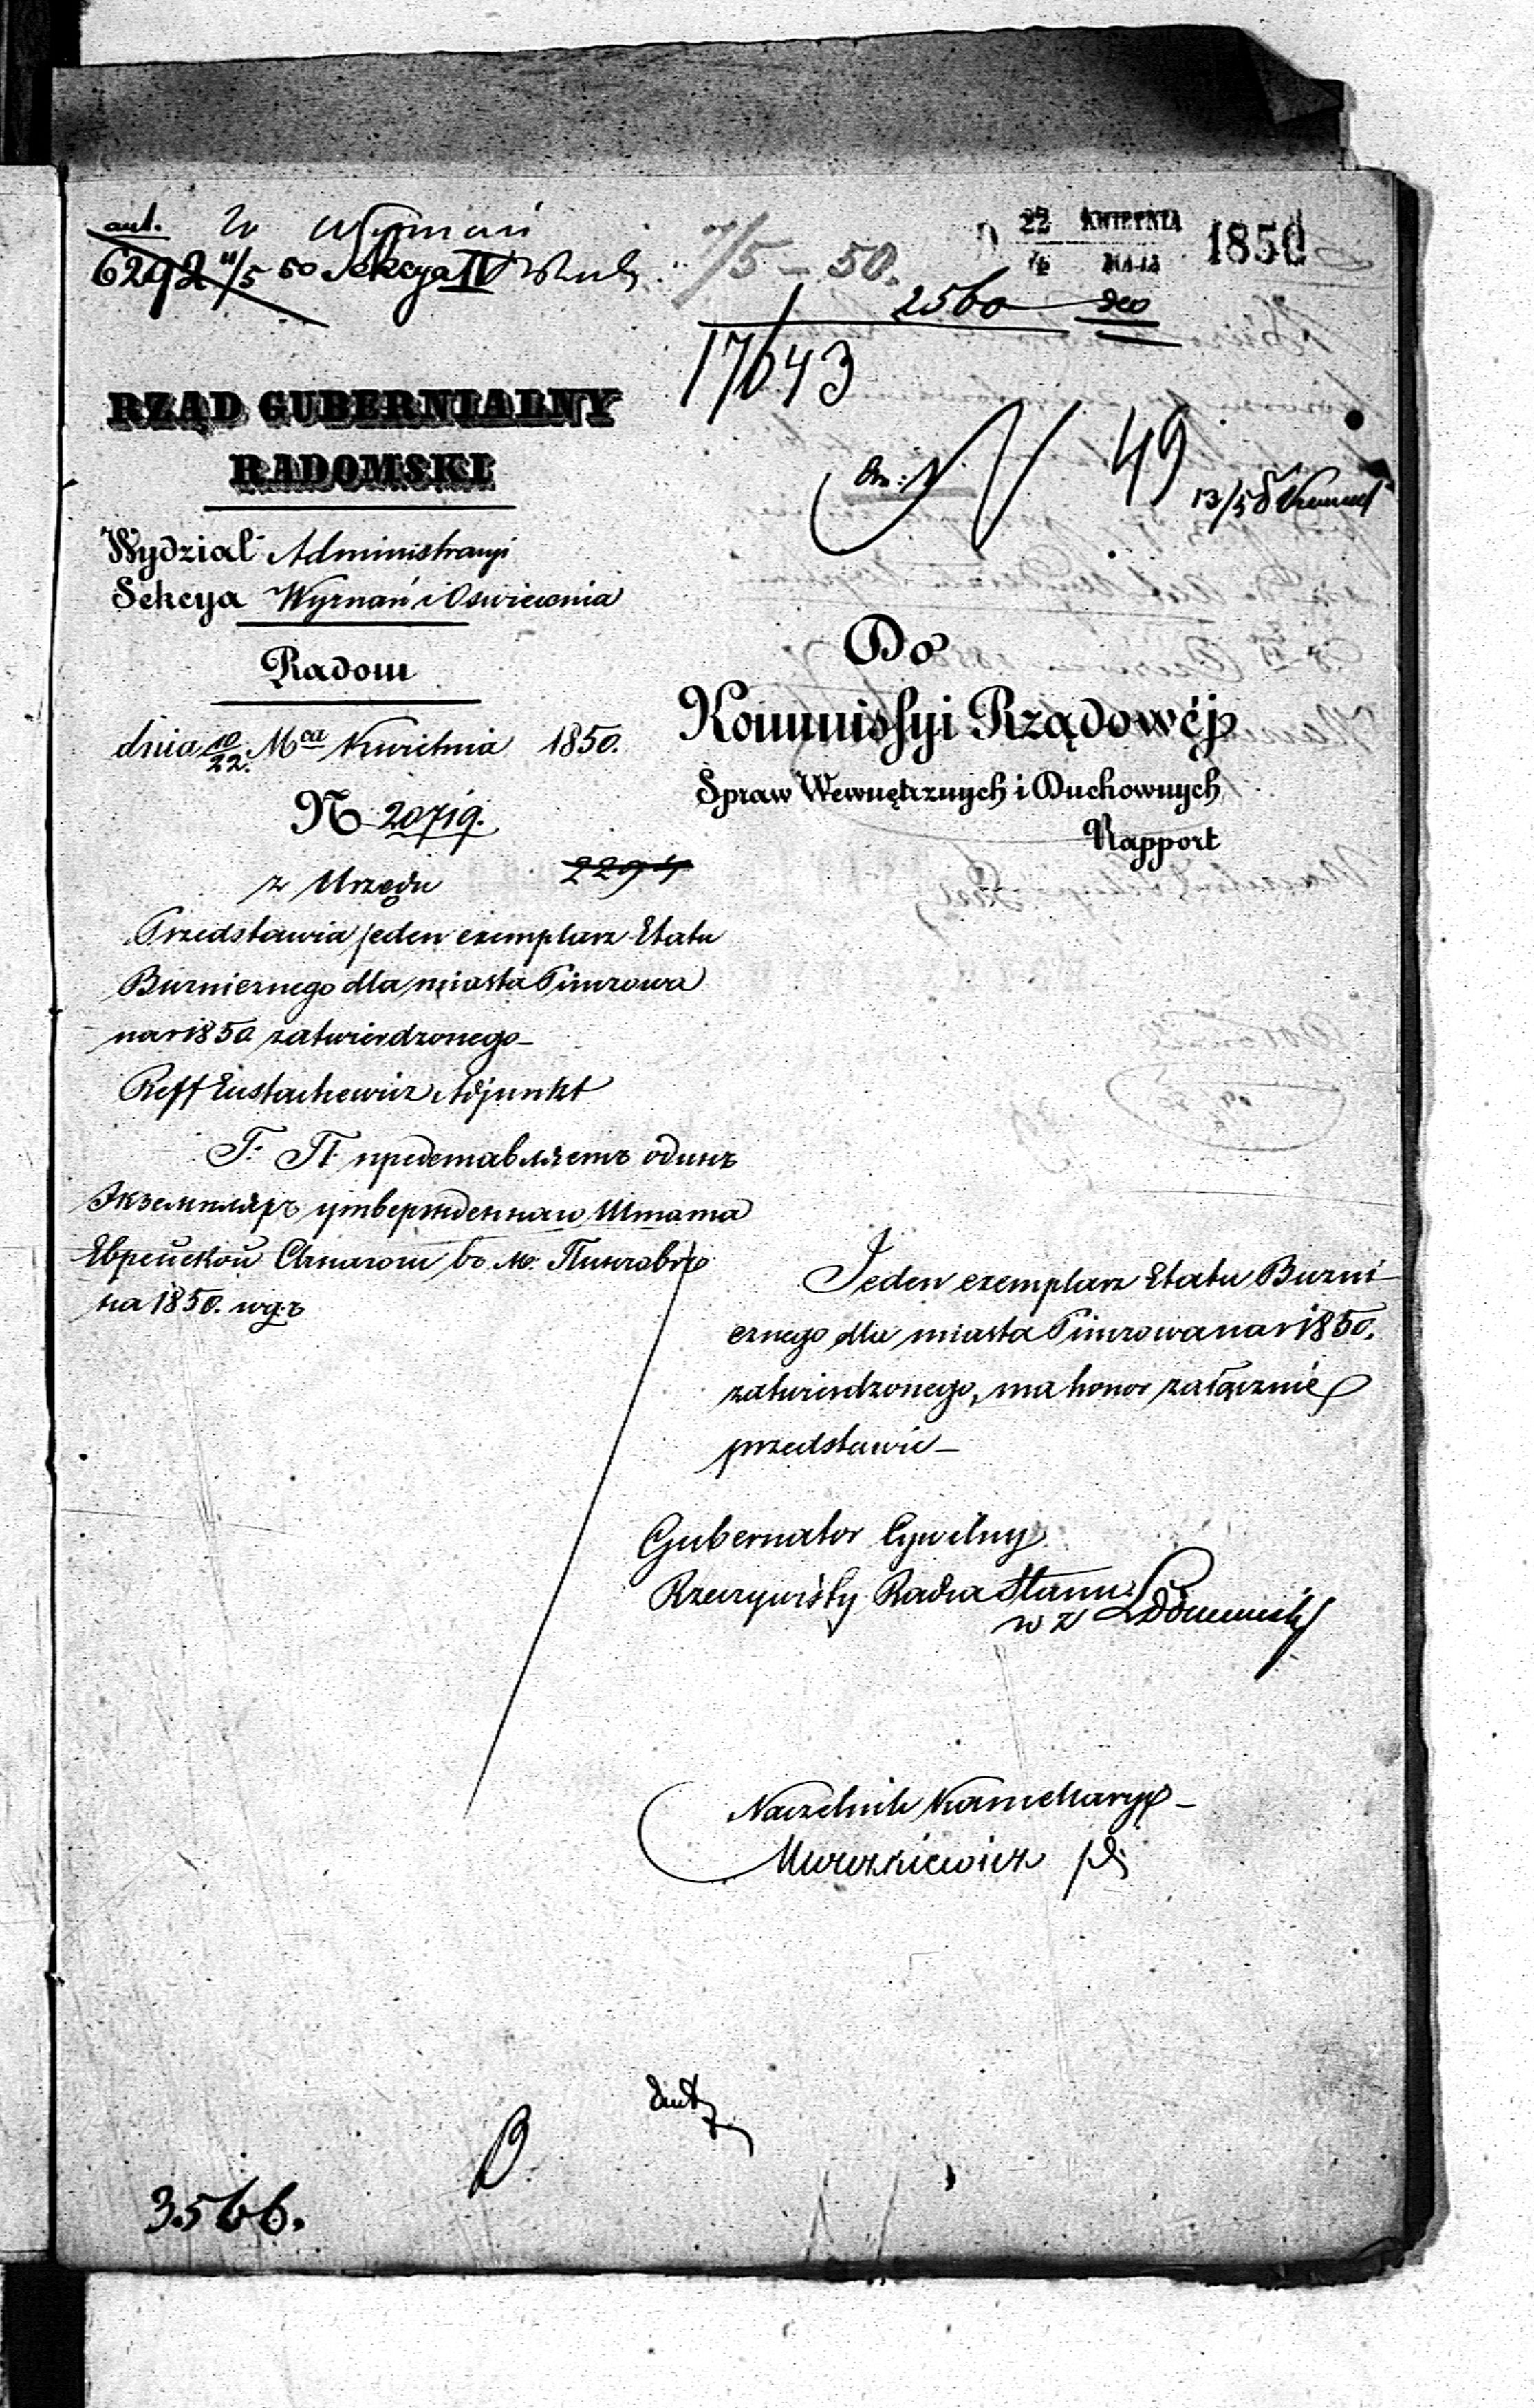 ant. W Wyznań
6292 11/5 50 Sekcya IV
7/5 – 50.
22 KWIETNIA 1850
4 MAJA
2560
17643
49
13/5
RZĄD GUBERNIALNY
RADOMSKI
Wydział Administracyi
Sekcya Wyznań i Oswiecenia
Radom
dnia 10/22. Mca Kwietnia 1850.
N 20719.
z Urzędu 2294
Przedstawia jeden exemplarz Etatu
Buznicznego dla miasta Pinczowa
na r 1850 zatwierdzonego –
Reff Eustachewicz Adjunkt
Г. П. представляетъ одинъ
Экземпляръ утвержденнаго Штата
Еврейской Синагоги въ м. Пинчовѣ
на 1850. годъ
Do
Kommissyi Rządowéj
Spraw Wewnętrznych i Duchownych
Rapport
Jeden exemplarz Etatu Buzni
cznego dla miasta Pinczowa na r 1850.
zatwierdzonego, ma honor załącznie
przedstawic –
Gubernator Cywilny
Rzeczywisty Radca Stanu
w z
Naczelnik Kancellaryi –
B.
3566.